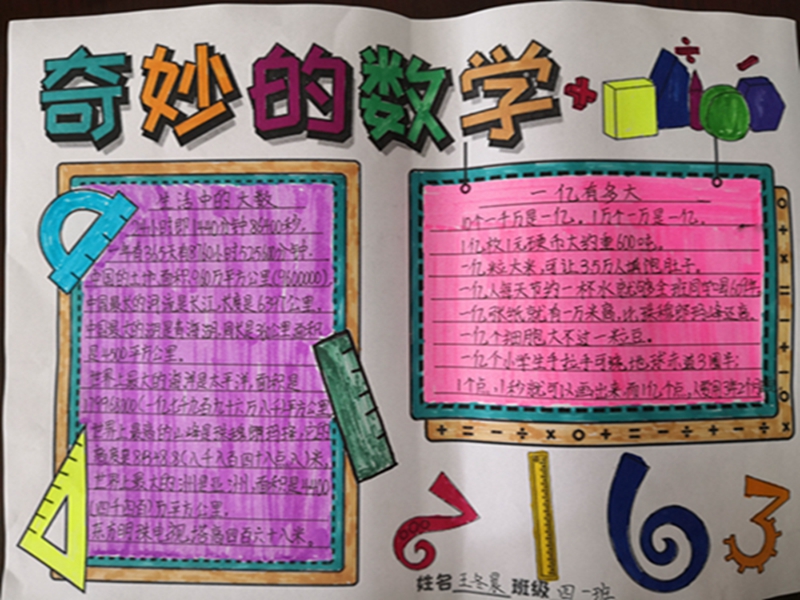 奇妙的数学
生活中的大数
24小时即1440分钟86400秒.
一年有365天有8760小时525600分钟.
中国的土地面积960万平方公里(9600000).
中国最大的河流是长江,长度是6397公里.
中国最大的湖是青海湖,周长是360公里面积
是4500平方公里.
世界上最大的海洋是太平洋,面积是
179968000(一亿七千九百九十六万八千)平方公里
世界上最高的山峰是珠穆朗玛峰,它的
高度是8848.8(八千八百四十八点八)米.
世界上最大的洲是亚洲,面积是4400
(四千四百)万平方公里.
东方明珠电视塔高四百六十八米.
一亿有多大
10个一千万是一亿。1万个一万是一亿.
1亿枚1元硬币大约重600吨.
一亿粒大米,可让3.5万人填饱肚子.
一亿人每天节约一杯水就够全班同学喝
一亿张纸就有一万米高,比珠穆朗玛峰还高.
一亿个细胞大不过一粒豆.
一亿个小学生手拉手可绕地球赤道3圈半;
1个点,1秒就可以画出来而1亿个点,
姓名 王冬晨 班级 四一班